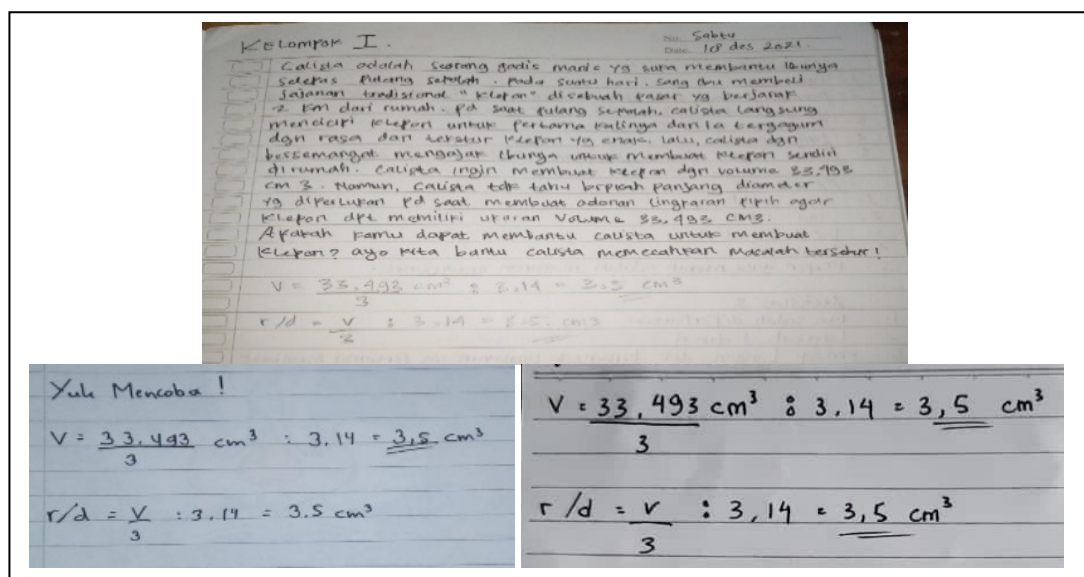 Kelompok I.
No. Sabtu
Date. 18 des 2021.
Calista adalah seorang gadis manis yg suka membantu ibunya
selepas pulang sekolah. pada suatu hari, sang ibu membeli
jajanan tradisional "klepon" disebuah pasar yg berjarak
2 km dari rumah. pd saat pulang sekolah, calista langsung
mencicipi klepon untuk pertama kalinya dan ia tergagum
dgn rasa dan terstur klepon yg enak. lalu, calista dgn
bersemangat mengajak ibunya untuk membuat klepon sendiri
dirumah. Calista ingin membuat klepon dgn volume 33,493
cm 3. Namun, Calista tdk tahu brpkah panjang diameter
yg diperlukan pd saat membuat adonan lingkaran pipih agar
klepon dpt memiliki ukuran Volume 33,493 CM3.
Apakah kamu dapat membantu calista untuk membuat
klepon? ayo kita bantu calista memecahkan masalah tersebut!
V = 33,493 cm³ : 3,14 = 3,5 cm³
3
r/d = V : 3,14 = 3,5. cm3
3
Yuk Mencoba !
V = 33.493 cm³ : 3.14 = 3,5 cm³
3
r/d = V : 3.14 = 3.5 cm³
3
V = 33,493 cm³ : 3,14 = 3,5 cm³
3
r/d = V : 3,14 = 3,5 cm³
3